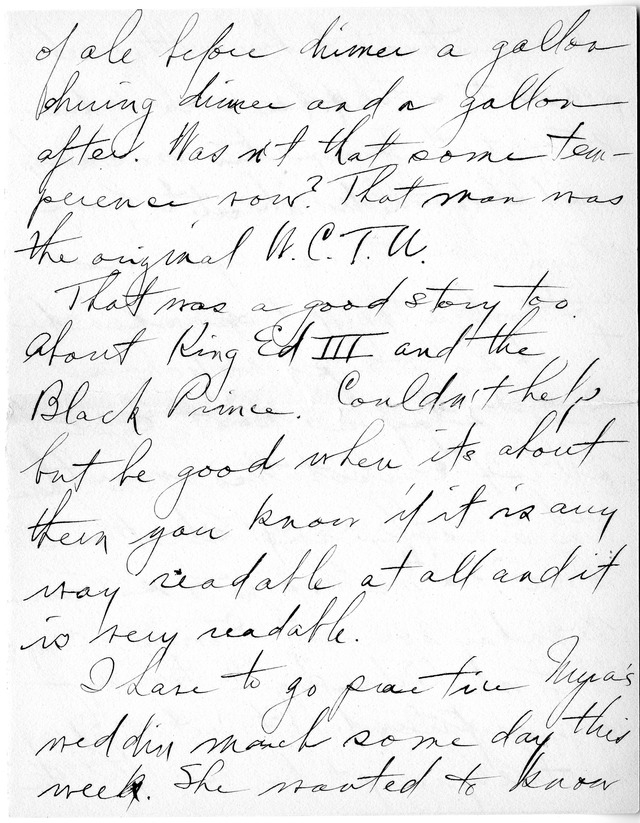 of ale before dinner a gallon
during dinner and a gallon
after. Wasn't that some tem-
perence now? That man was
the original W.C.T.U.
That was a good story too
about King Ed III and the
Black Prince. Couldn't help
but be good when its about
them you know if it is any
way readable at all and it
is very readable.
I have to go practice Myra's
weddin march some day this
week. She wanted to know